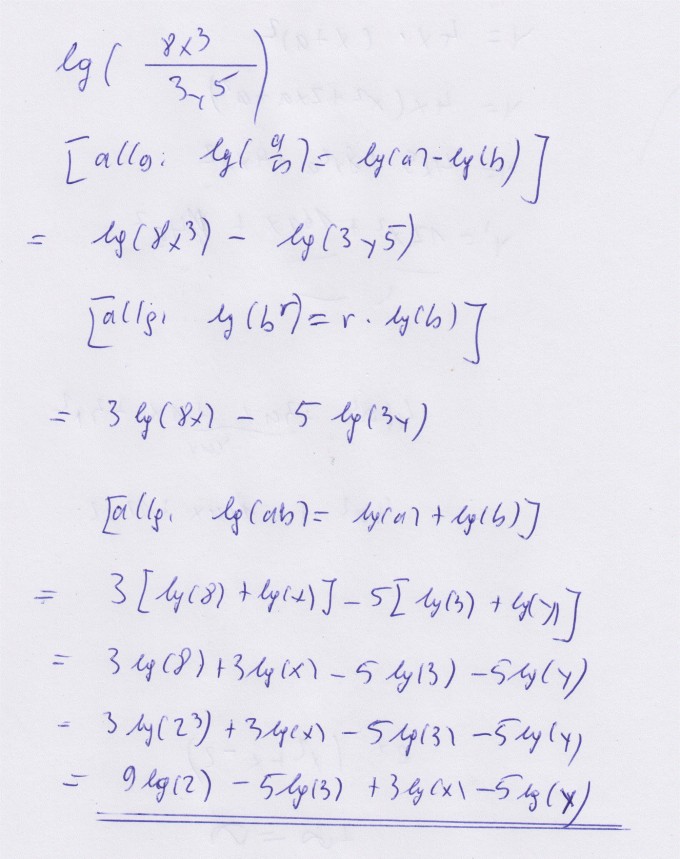 lg( 8x3 / 3y5 )
[allg. lg(a/b) = lg(a) - lg(b)]
= lg(8x³) - lg(3y5)
[allg. lg(bʳ) = r · lg(b)]
= 3 lg(8x) - 5 lg(3y)
[allg. lg(ab) = lg(a) + lg(b)]
= 3 [lg(8) + lg(x)] - 5 [lg(3) + lg(y)]
= 3 lg(8) + 3 lg(x) - 5 lg(3) - 5 lg(y)
= 3 lg(2³) + 3 lg(x) - 5 lg(3) - 5 lg(y)
= 9 lg(2) - 5 lg(3) + 3 lg(x) - 5 lg(y)